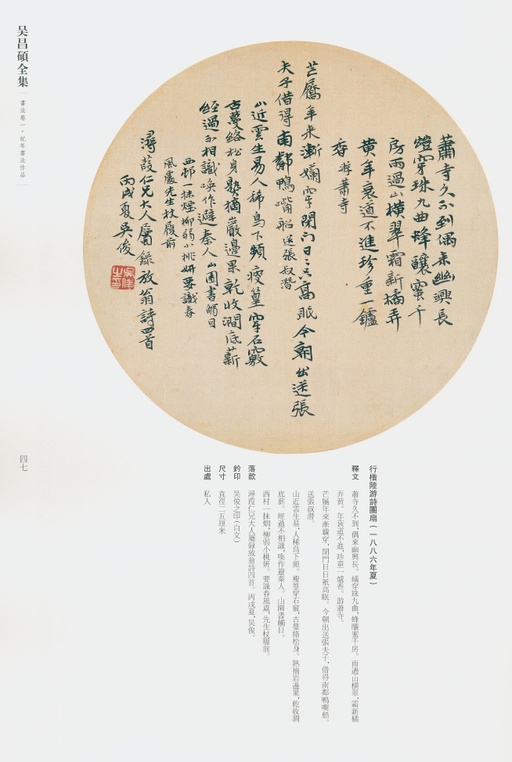 吴昌碩全集
書法卷一·紀年書法作品
四七
蕭寺久不到偶来幽興長
蟻穿珠九曲蜂釀蜜千
房雨過山横翠霜新橘弄
黄年衰道不進珍重一鑪
香 游蕭寺
芒屩年来漸嬾穿閉門日日只高眠今朝出送張
夫子借得南鄰鴨嘴船 送張叔潛
山近雲生易人稀鳥下頻瘦篁穿石竅
古蔓絡松身熟摘巖邊果乾收澗底薪
經過不相識喚作避秦人 山園書觸目
西邨一抹煙柳弱小桃妍要識春
風處先生杖屨前
潯葭仁兄大人屬録放翁詩四首
丙戌夏吳俊
吳俊之印
行楷陸游詩團扇(一八八六年夏)
釋文 蕭寺久不到,偶來幽興長。蟻穿珠九曲,蜂釀蜜千房。雨過山横翠,霜新橘
弄黄。年衰道不進,珍重一爐香。游蕭寺。
芒屩年來漸懶穿,閉門日日衹高眠。今朝出送張夫子,借得南鄰鴨嘴船。
送張叔潛。
山近雲生易,人稀鳥下頻。瘦篁穿石竅,古蔓絡松身。熟摘岩邊果,乾收澗
底薪。經過不相識,唤作避秦人。山園書觸目。
西村一抹烟,柳弱小桃妍。要識春風處,先生杖屨前。
落款 潯葭仁兄大人屬録放翁詩四首。丙戌夏,吴俊。
鈐印 吴俊之印(白文)
尺寸 直徑二五厘米
出處 私人